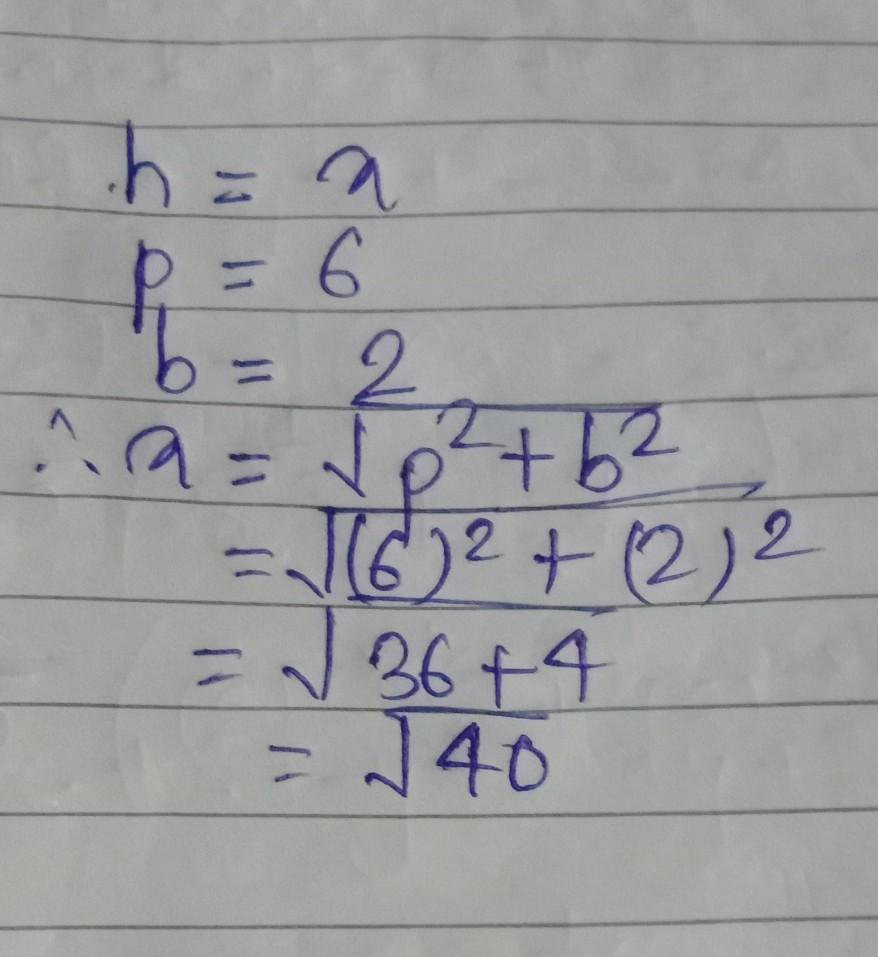 h = x
p = 6
b = 2
∴ x = √p² + b²
= √(6)² + (2)²
= √36 + 4
= √40